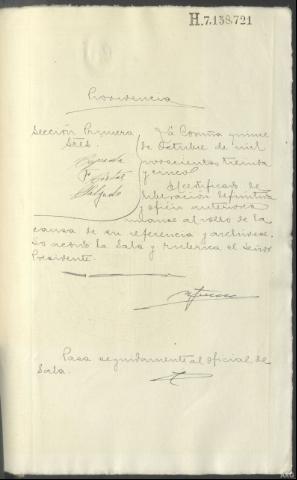 H.7.138.721
Providencia
Sección Primera
Sres.
La Coruña quince
de Octubre de mil
novecientos treinta
y cinco.
El certificado de
liberación definitiva
y oficio anteriores
unanse al rollo de la
causa de su referencia y archivese.
Lo acordó la Sala y rubrica el Señor
Presidente.
Pasa seguidamente al oficial de
Sala.